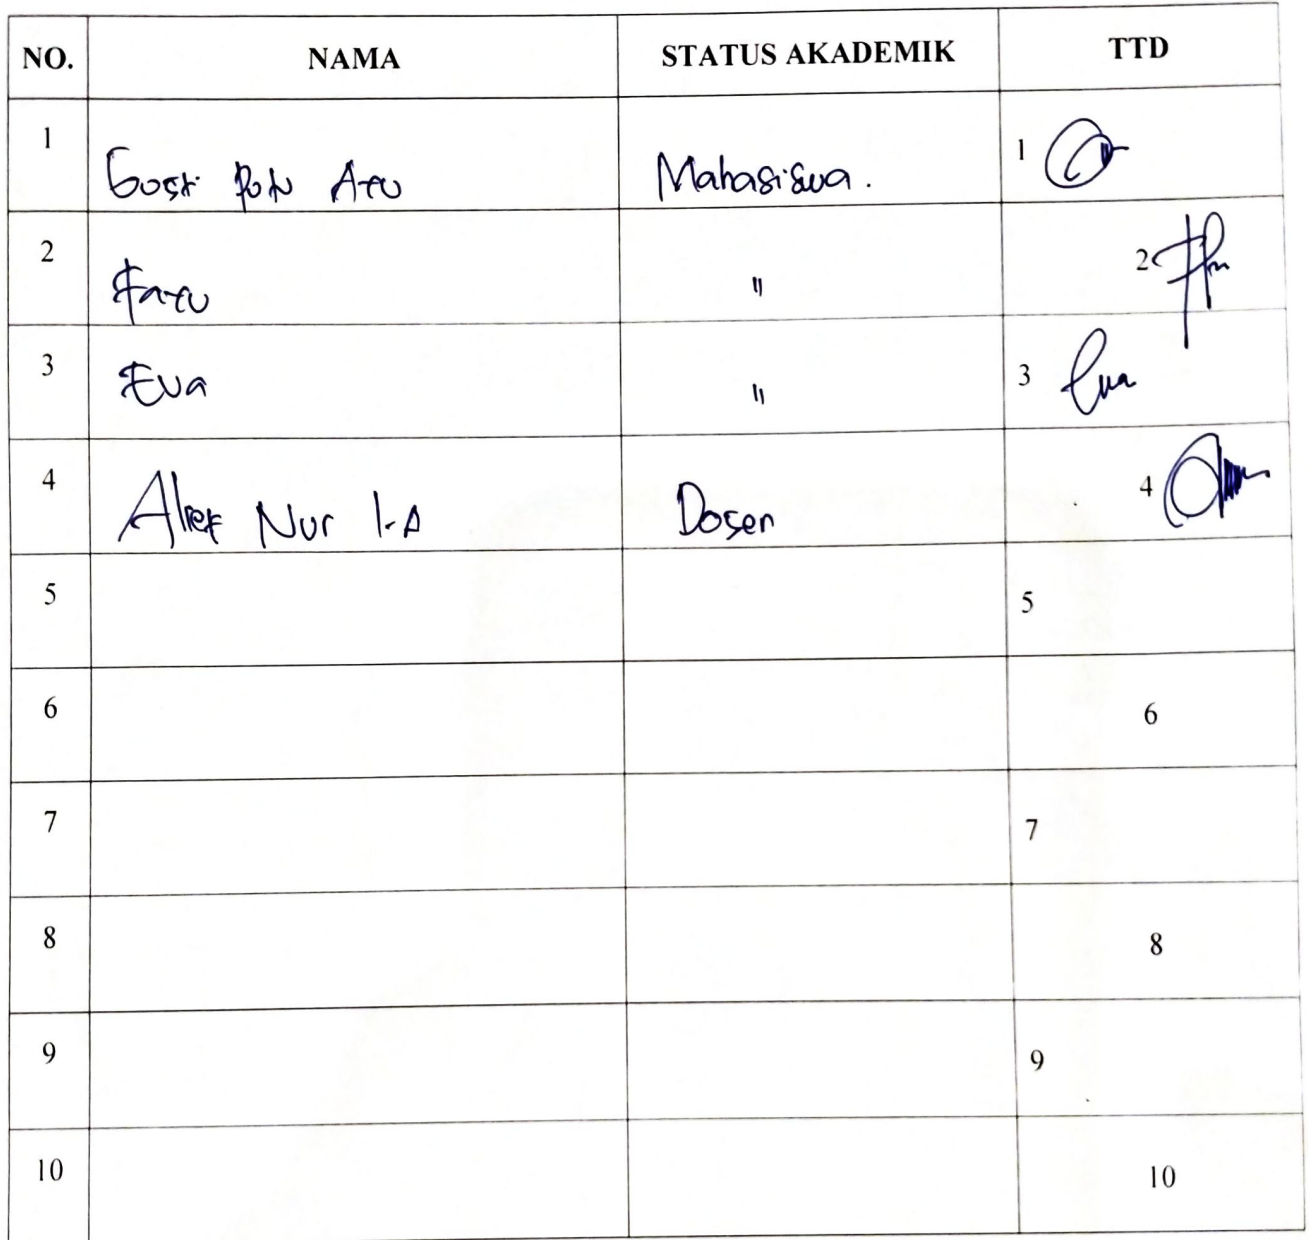 NO. NAMA STATUS AKADEMIK TTD
1 Gusti Putu Ayu Mahasiswa. 1
2 " 2
3 Eva " 3 Eva
4 Nur I.A Dosen 4
5 5
6 6
7 7
8 8
9 9
10 10